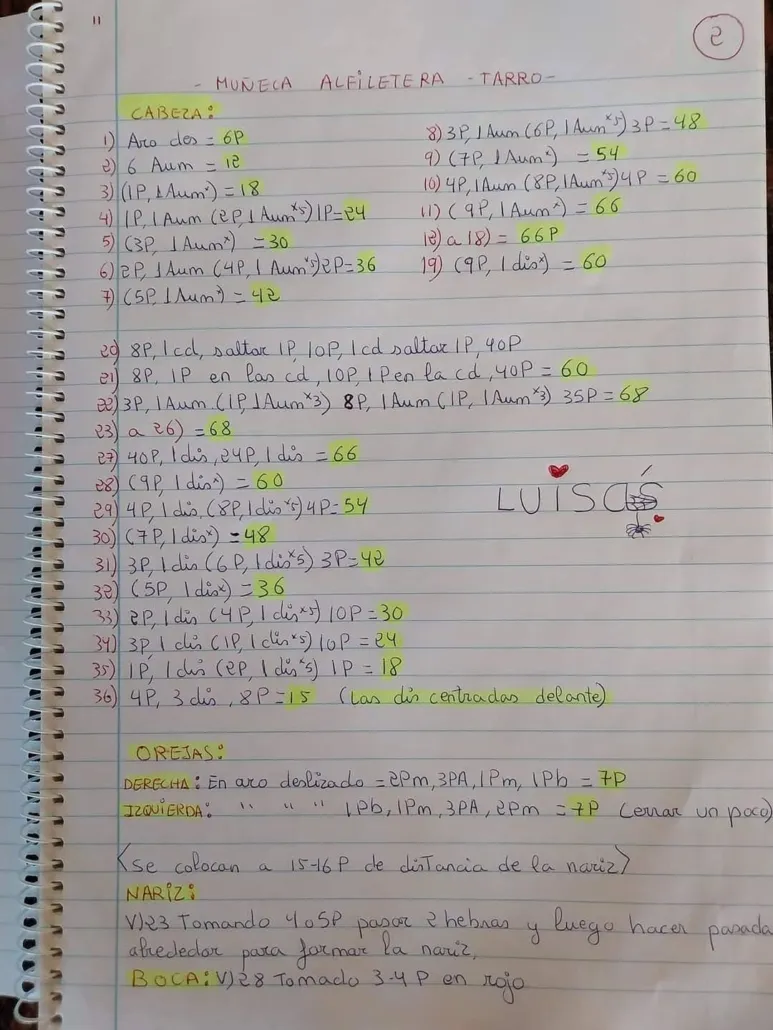 "
2
- MUÑECA ALFILETERA - TARRO -
CABEZA:
1) Aro des = 6P
2) 6 Aum = 12
3) (1P, 1Aumˣ) = 18
4) 1P, 1Aum (2P, 1Aumˣ⁵) 1P = 24
5) (3P, 1Aumˣ) = 30
6) 2P, 1Aum (4P, 1Aumˣ⁵) 2P = 36
7) (5P, 1Aumˣ) = 42
8) 3P, 1Aum (6P, 1Aumˣ⁵) 3P = 48
9) (7P, 1Aumˣ) = 54
10) 4P, 1Aum (8P, 1Aumˣ⁵) 4P = 60
11) (9P, 1Aumˣ) = 66
12) a 18) = 66P
19) (9P, 1disˣ) = 60
20) 8P, 1cd, saltar 1P, 10P, 1cd saltar 1P, 40P
21) 8P, 1P en las cd, 10P, 1P en la cd, 40P = 60
22) 3P, 1Aum (1P, 1Aumˣ³) 8P, 1Aum (1P, 1Aumˣ³) 35P = 68
23) a 26) = 68
27) 40P, 1dis, 24P, 1dis = 66
28) (9P, 1disˣ) = 60
29) 4P, 1dis, (8P, 1disˣ⁵) 4P = 54
30) (7P, 1disˣ) = 48
31) 3P, 1dis (6P, 1disˣ⁵) 3P = 42
32) (5P, 1disˣ) = 36
33) 2P, 1dis (4P, 1disˣ⁵) 10P = 30
34) 3P 1dis (1P, 1disˣ⁵) 10P = 24
35) 1P, 1dis (2P, 1disˣ⁵) 1P = 18
36) 4P, 3dis, 8P = 15 (Las dis centradas delante)
LUISAS
OREJAS:
DERECHA: En aro deslizado = 2Pm, 3PA, 1Pm, 1Pb = 7P
IZQUIERDA: " " " 1Pb, 1Pm, 3PA, 2Pm = 7P (cerrar un poco)
<Se colocan a 15-16P de distancia de la nariz>
NARIZ:
V)23 Tomando 4o5P pasar 2 hebras y luego hacer pasada
alrededor para formar la nariz,
BOCA: V)28 Tomado 3-4P en rojo